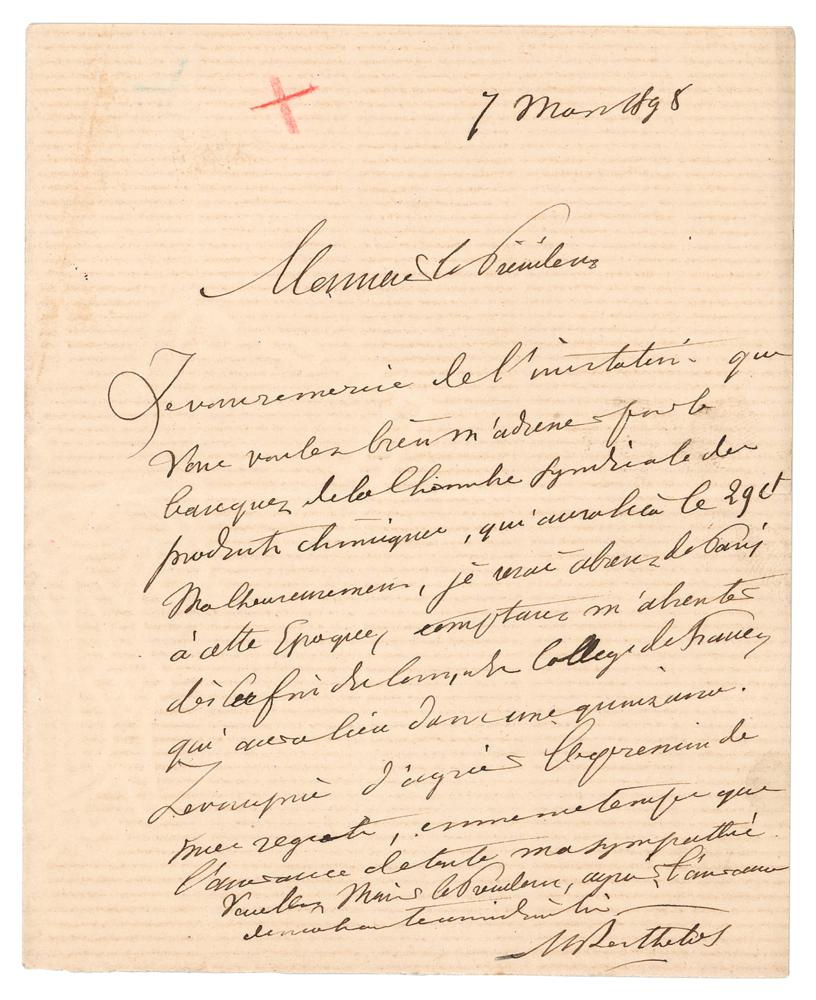 7 Mars 1898
Monsieur le Président
Je vous remercie de l'invitation que
vous voulez bien m'adresser pour le
banquet de la Chambre syndicale des
produits chimiques, qui aura lieu le 29 ct
Malheureusement, je serai absent de Paris
à cette Epoque, comptant m'absenter
dès la fin du cours du Collège de France,
qui aura lieu dans une quinzaine.
Je vous prie d'agréer l'expression de
mes regrets, en même temps que
l'assurance de toute ma sympathie
Veuillez Monsr le Président, agréer l'assurance
de ma haute considération
M Berthelot